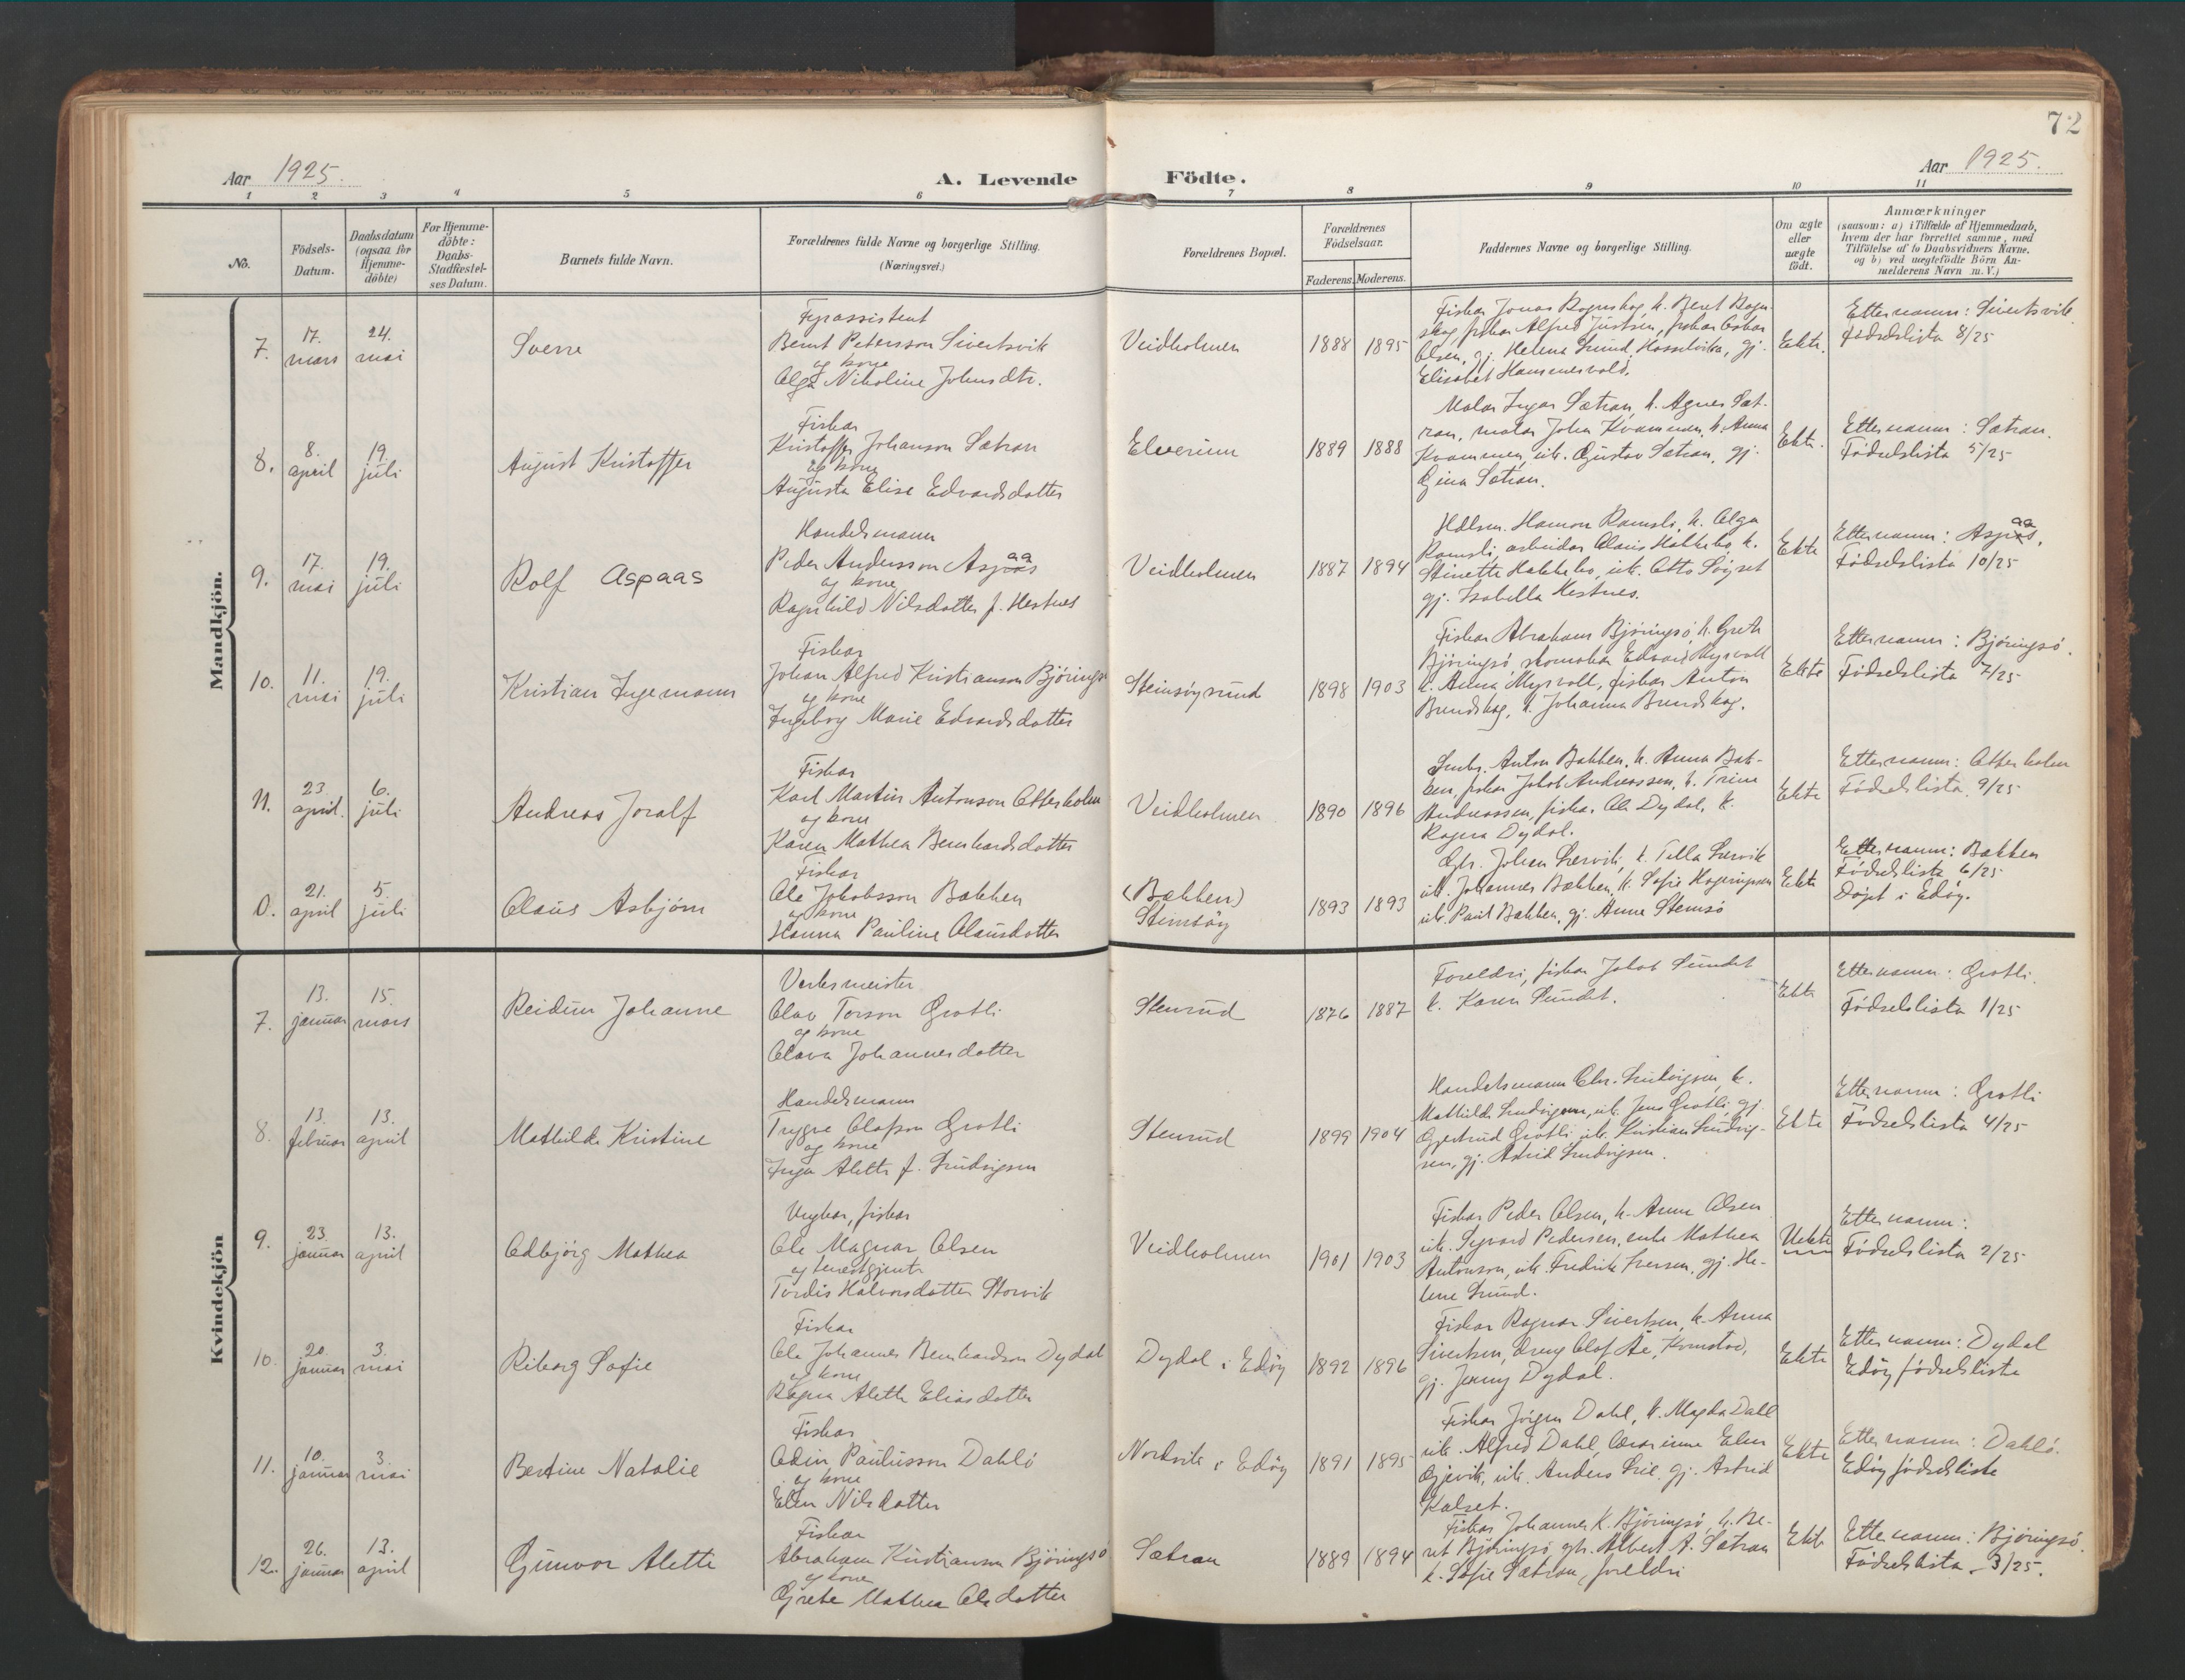 72
Aar 1925.
A. Levende Födte.
Aar 1925.
1 2 3 4 5 6 7 8 9 10 11
No.
Födsels-Datum.
Daabsdatum (ogsaa for Hjemme-döbte)
For Hjemme-döbte: Daabs-Stadfæstel-ses Datum.
Barnets fulde Navn.
Forældrenes fulde Navne og borgerlige Stilling.
(Næringsvei.)
Forældrenes Bopæl.
Forældrenes Födselsaar.
Faderens. Moderens.
Faddernes Navne og borgerlige Stilling.
Om ægte eller uægte födt.
Anmærkninger
(saasom: a) i Tilfælde af Hjemmedaab,
hvem der har forrettet samme, med
Tilföielse af to Daabsvidners Navne.
og b) ved uægtefödte Börn An-
melderens Navn m. V.)
Mandkjön.
7. 17. mars 24. mai
Sverre
Fyrassistent
Bernt Petersson Sivertsvik
og kone
Olga Nikoline Johnsdtr.
Veidholmen
1888 1895
Elisabet Hammervold.
Ekte.
Etternamn: Sivertsvik
Fødselslista 8/25
8. 8. april 19. juli
August Kristoffer
Fiskar
Kristoffer Johanson Sætran
og kone
Augusta Elise Edvardsdatter
Elverum
1889 1888
Malar Ingar Sætran, k. Agnes Sæt-
ran, malar Johan Kvammen, k. Anna
Kvammen, uk. Gustav Sætran, gj.
Gina Sætran.
Ekte.
Etternamn: Sætran.
Fødselslista 5/25
9. 17. mai 19. juli
Rolf Aspaas
Handelsmann
Peder Andersson Aspaas
og kone
Ragnhild Nilsdatter f. Hestnes
Veidholmen
1887 1894
Hdlsm. Hamon Ramsli, k. Olga
Ramsli, arbeidar Claus Hakkebo, k.
Stinette Hakkebo, uk. Otto
gj. Isabella Hestnes.
Ekte
Etternamn: Aspaas.
Fødselslista 10/25
10. 11. mai 19. juli
Kristian Ingemann
Fiskar
Johan Alfred Kristianson Bjøringsø
og kone
Ingeborg Marie Edvardsdatter
Steinsøysund
1898 1903
Fiskar Abraham Bjøringsø, k. Grete
Bjøringsø, skomakar Edvard Myrvoll
k. Anna Myrvoll, fiskar Anton
Brundskog, k. Johanna Brundskog.
Ekte
Etternamn: Bjøringsø.
Fødselslista 7/25
11. 23. april. 6. juli
Andreas Joralf
Fiskar
Karl Martin Antonson Otterholm
og kone
Karen Mathea Bernhardsdatter
Veidholmen
1890 1896
Anton Bakken, k. Anna Bak-
ken, fiskar Jakob Andreassen, k. Trine
Andreassen, fiskar Ole Dydal, k.
Ragna Dydal.
Ekte
Etternamn: Otterholm
Fødselslista 9/25
0. 21. april 5. juli
Claus Asbjørn
Fiskar
Ole Jakobsson Bakken
og kone
Hanna Pauline Clausdatter
(Bakken)
Steinsøy
1893 1893
uk. Johannes Bakken, k. Sofie
uk. Paul Bakken, gj. Anne Stensø
Ekte
Etternamn: Bakken
Fødselslista 6/25
Døpt i Edøy.
Kvindekjön
7. 13. januar 15. mars
Reidun Johanne
Verksmeister
Olav Torson Grøtli
og kone
Olava Johannesdatter
Stenrud
1876 1887
Foreldri, fiskar Jakob Sundet
k. Karen Sundet.
Ekte
Etternamn: Grøtli.
Fødselslista 1/25
8. 13. februar 13. april
Mathilde Kristine
Handelsmann
Trygve Olafson Grøtli
og kone
Inga Alette f. Ludvigsen
Stenrud
1899 1904
Handelsmann Chr. Ludvigsen, k.
Mathilde Ludvigsen, uk. Jens Grøtli, gj.
Gjertrud Grøtli, uk. Kristian Ludvig-
sen, gj. Astrid Ludvigsen.
Ekte
Etternamn: Grøtli
Fødselslista 4/25
9. 23. januar 13. april
Odbjörg Mathea
fiskar
Ole Magnar Olsen
og tenestgjente
Tordis Halvorsdatter Storvik
Veidholmen
1901 1903
Fiskar Peder Olsen, k. Anne Olsen
uk. Sigvard Pedersen, enke Mathea
Antonson, uk. Fredrik Iversen, gj. He-
lene Lund.
Uekte
Etternamn:
Fødselslista 2/25
10. 20. januar 3. mai
Riborg Sofie
Fiskar
Ole Johannes Bernhardson Dydal
og kone
Ragna Alette Eliasdatter
Dydal i Edöy
1892 1896
Fiskar Ragnar Sivertsen, k. Anna
Sivertsen, dreng Olof Åe, Kornstad,
gj. Jenny Dydal.
Ekte
Etternamn: Dydal
Edöy fødselsliste
11. 10. januar 3. mai
Bertine Natalie
Fiskar
Odin Paulusson Dahlö
og kone
Elen Nilsdatter
Nordvik i Edöy
1891 1895
Fiskar Jörgen Dahl, k. Magda Dahl
uk. Alfred Dahl, lærarinne Elen
Gjövik, uk. Anders Lie, gj. Astrid
Kalset.
Ekte
Etternamn: Dahlö.
Edöy fødselsliste
12. 26. januar 13. april
Gunvor Alette
Fiskar
Abraham Kristianson Björingsö
og kone
Grete Mathea Olsdatter
Sætran
1889 1894
Fiskar Johannes K. Björingsö, k. Be-
ret Björingsö, gb. Albert A. Sætran
k. Sofie Sætran, foreldri
Ekte
Etternamn: Björingsö.
Fødselslista 3/25.